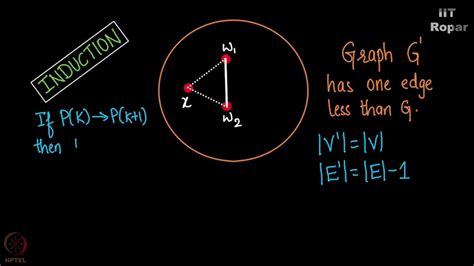 IIT
Ropar
INDUCTION
If P(K)→P(K+1)
then I
W₁
x
W₂
Graph G'
has one edge
less than G.
|V'|=|V|
|E'|=|E|-1
NPTEL